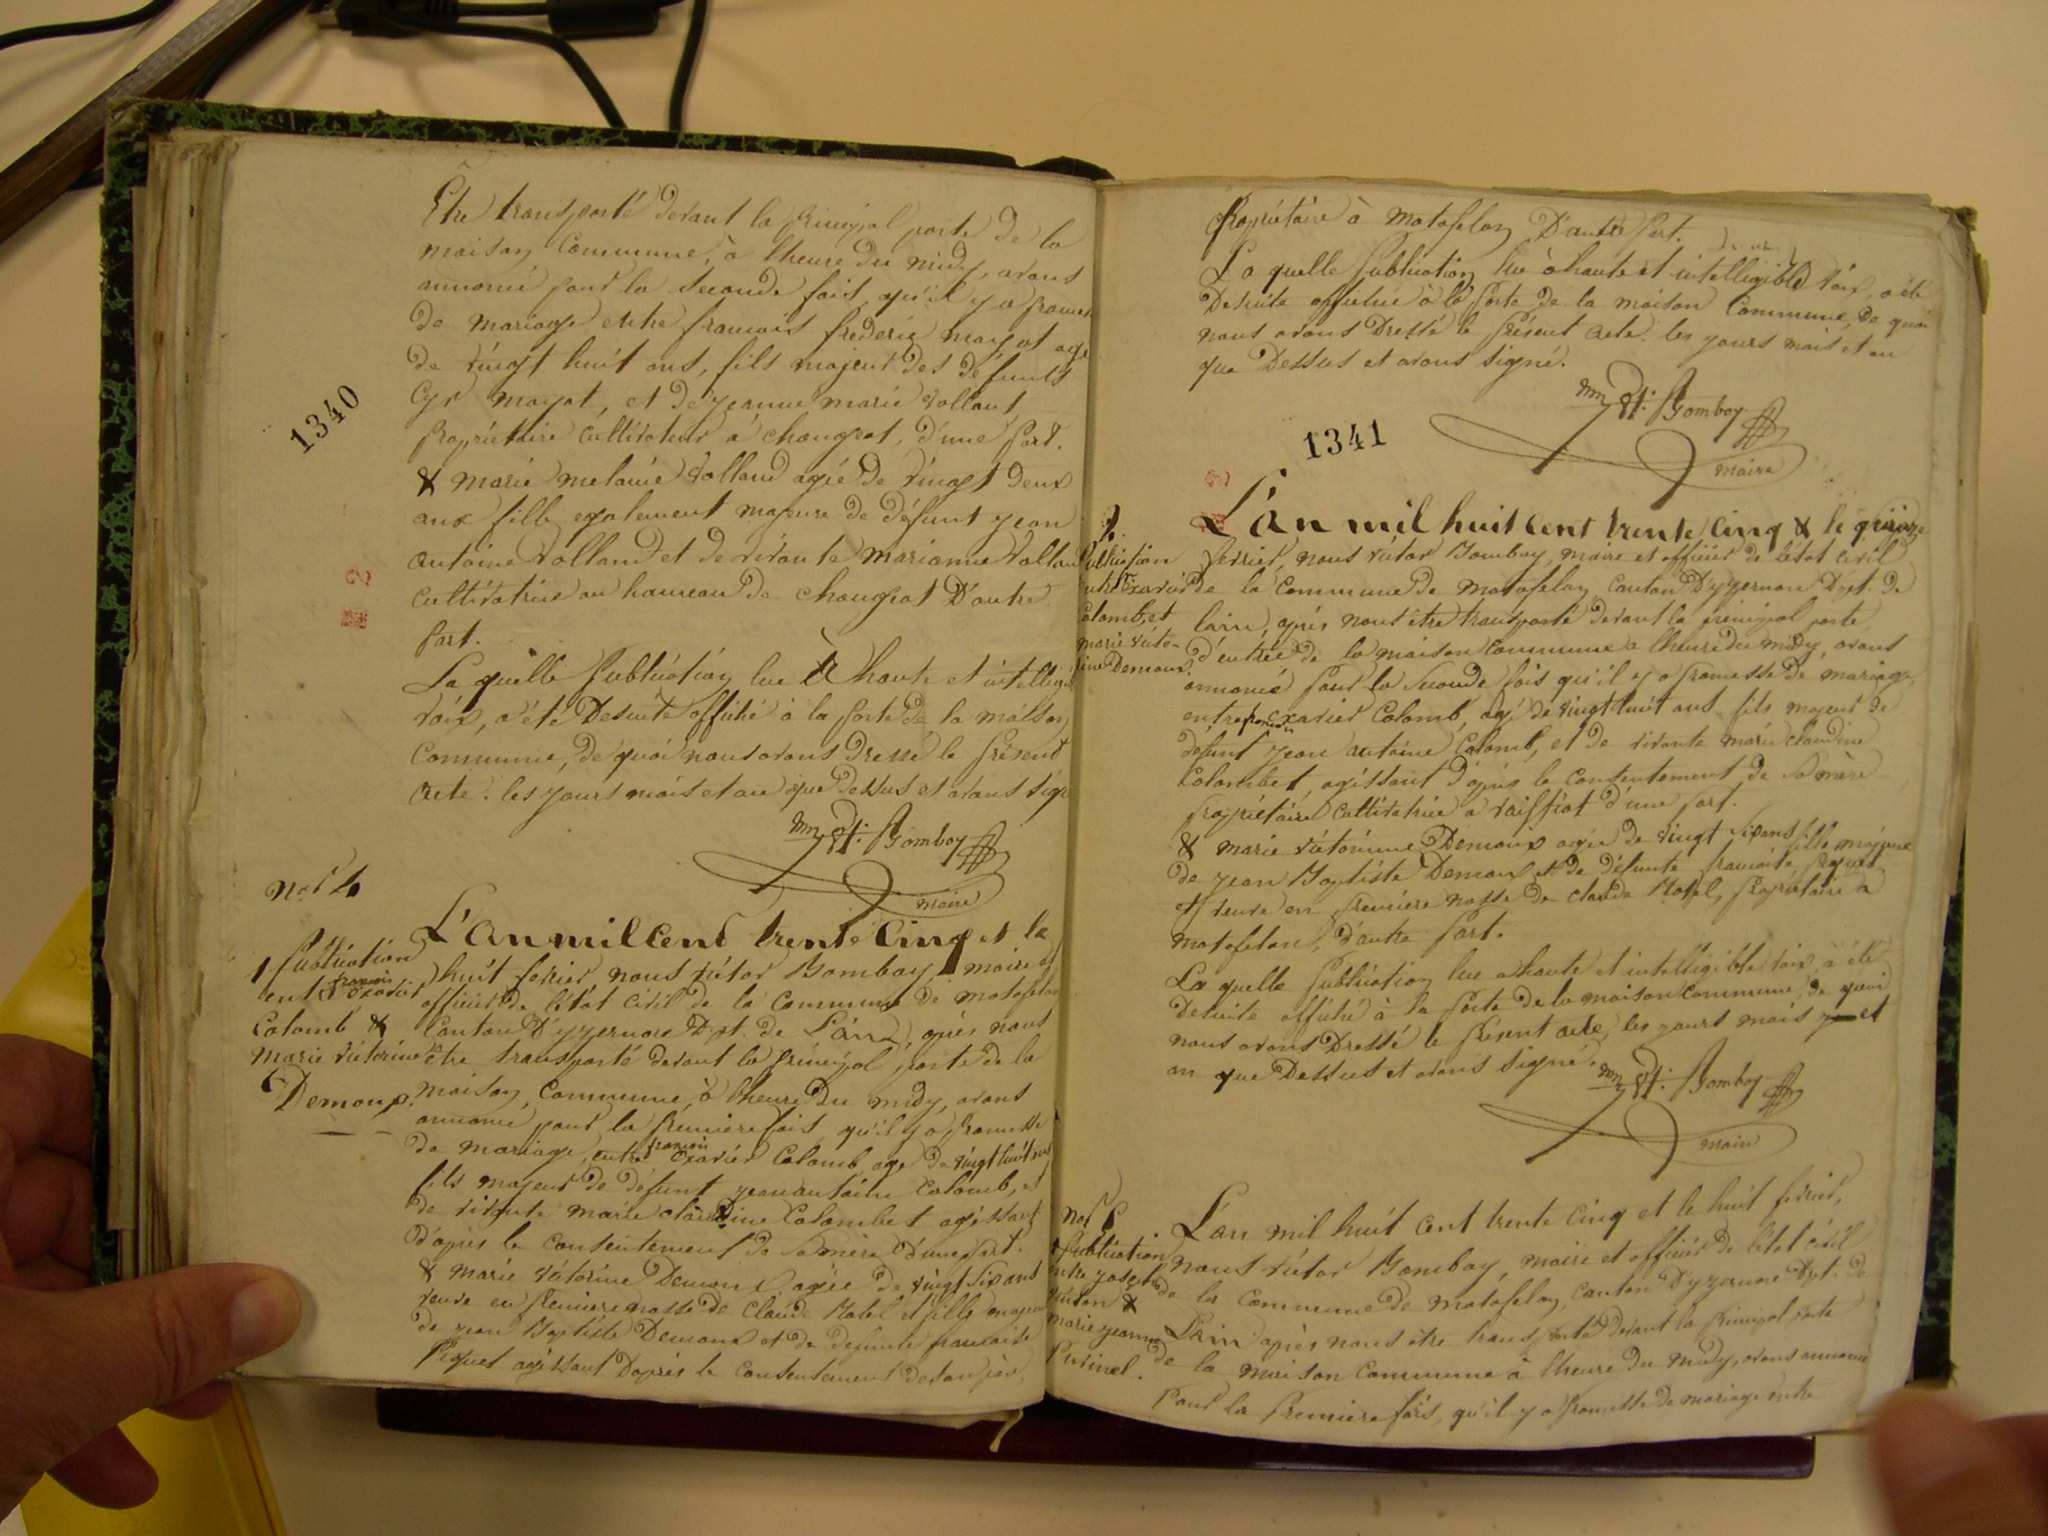 Etre transporté devant la principal porte de la
maison Commune, à l'heure du midy, avons
annoncé pour la seconde fois, qu'il y a promes
de mariage entre francois frederic mayot agé
de vingt huit ans, fils majeur des défunts
Cyr mayot, et de jeanne marie vollant,
propriétaire cultivateur à changeat, d'une part.
& marie melanie volland agée de vingt deux
ans fille egalement majeure de défunt jean
antoine volland et de vivante marianne vollan
cultivatrice au hameau de changeat D'autre
part.
La quelle Publication lue à haute et intelligi
voix, a été Desuite affiché à la porte de la maison
Commune, de quoi nous avons dressé le présent
acte. les jours mois et an que dessus et avons sign
Gomboy
maire
1340
not 4
1 Publication
entre francois Exavier
Colomb &
Marie victorine
Demoux.
L'an mil cent trente cinq et le
huit fevrier nous victor Gomboy, maire et
officier de l'état civil de la commune de matafelon
Canton D'yzernore Dpt. de L'ain, après nous
être transporté devant la principal porte de la
maison, Commune, à l'heure du midy, avons
annoncé pour la premiere fois, qu'il y a promesse
de mariage, entre francois Exavier Colomb, agé de vingt huit ans
fils majeur de défunt jean antoine Colomb, et
de vivante marie claudine Colombet agissant
d'après le consentement de sa mère d'une part.
& marie victorine Demoux agée de vingt six ans
veuve en premiere nosse de Claude Hotel et fille majeur
de jean Baptiste Demoux et de defunte francoise
Piquet agissant D'après le consentement de son père,
Propriétaire à Matafelon D'autre Part.
La quelle Publication lue à haute et intelligible voix, a été
Desuite affichée à la Porte de la maison Commune, De quoi
nous avons Dressé le présent acte. les jours mois et an
que Dessus et avons signé.
Gomboy
maire
1341
2.
Publication
entre Exavier
Colomb, et
marie victo-
rine Demoux.
L'an mil huit cent trente cinq & le quinze
fevrier, nous victor Gomboy, maire et officier de l'état civil
de la Commune de Matafelon, Canton D'yzernore Dpt. de
lain, après nous être transporté devant la principal porte
d'entrée de la maison Commune a l'heure du midy, avons
annoncé pour la seconde fois qu'il y a promesse de mariage,
entre francois Exavier Colomb, agé de vingt huit ans fils majeur de
défunt jean antoine Colomb, et de vivante marie claudine
Colombet, agissant D'après le consentement de sa mère
propriétaire cultivatrice a d'une part.
& marie victorinne Demoux agée de vingt six ans fille majeure
de jean Baptiste Demoux et de défunte francoise Piquet
et veuve en premiere nosse de claude Hotel, propriétaire a
matafelon, d'autre part.
La quelle publication lue a haute et intelligible voix, à été
desuite affiché à la porte de la maison commune, de quoi
nous avons Dressé le présent acte, les jours mois et
an que Dessus et avons signé.
Gomboy
maire
not 6
Publication
entre joseph
&
marie jeanne
L'an mil huit cent trente cinq et le huit fevrier,
nous victor Gomboy, maire et officier de l'état civil
de la Commune de matafelon, canton D'yzernore Dpt. de
L'ain après nous être transporté devant la principal porte
de la maison Commune à l'heure du midy, avons annoncé
Pour la Premiere fois, qu'il y a promesse de mariage entre